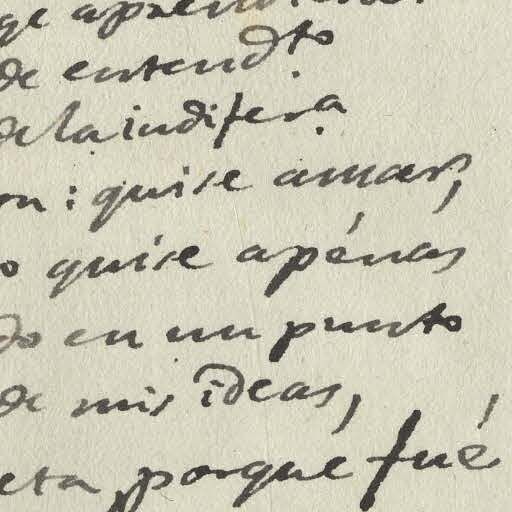 de entendto
de la indifera
on: quise amar,
o quise apénas
do en un punto
de mis ideas,
eta, porque fué